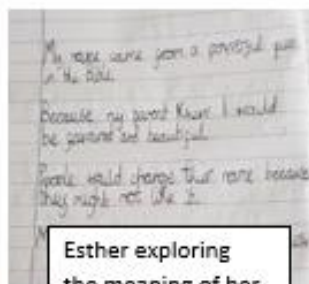 My name came from a powerful
in the
Because my parent knew I would
be powerful and beautiful.
People would change their name because
they might not like it.
Esther exploring
the meaning of her